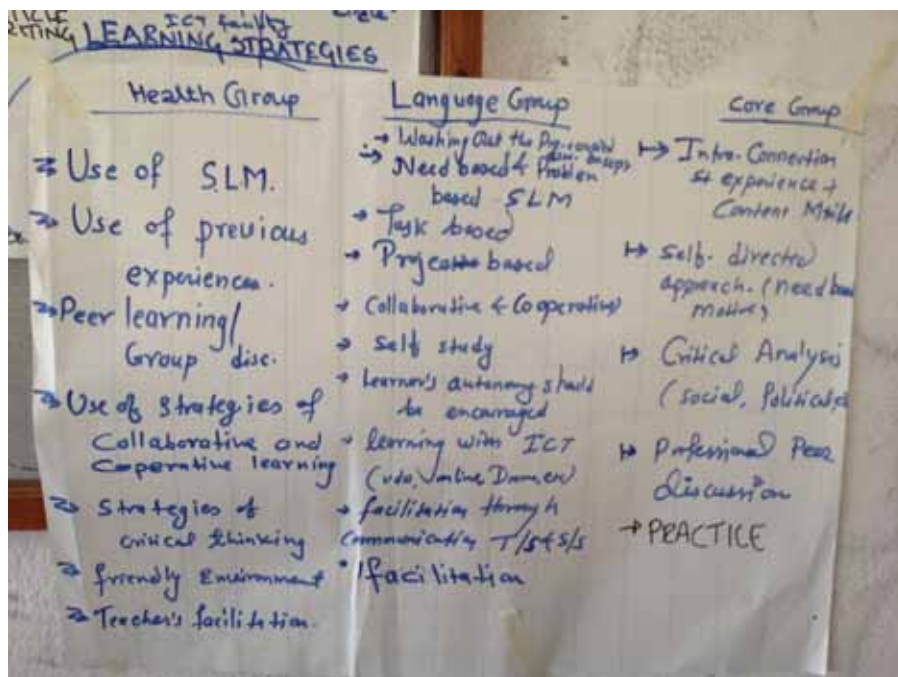 ICT faculty
LEARNING STRATEGIES
Health Group
Use of S.L.M.
Use of previous
experiences.
Peer learning/
Group disc.
Use of strategies of
Collaborative and
Coperative learning
Strategies of
critical thinking
friendly Environment
Teacher's facilitation.
Language Group
Washing Out the
Need based & Problem
based SLM
Task based
based
Collaborative & Cooperative
Self study
Learner's autonomy should
be encouraged
learning with ICT
facilitation through
Communication T/s & s/s
facilitation
Core Group
Intro. Connection
experience +
Content
Self-directed
approach. (need
Critical Analysis
(social, Political,
Professional Peer
discussion
PRACTICE